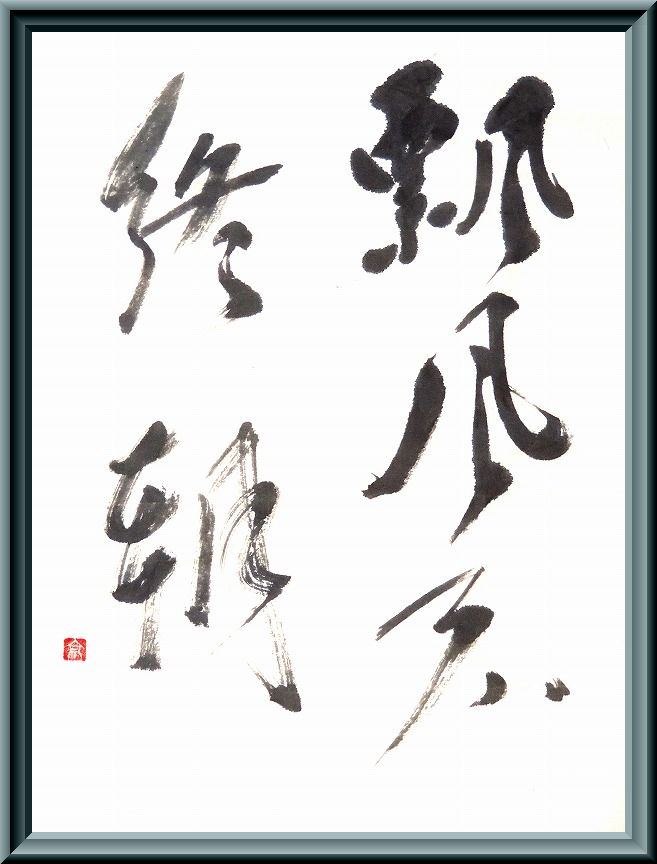 飄風不
終朝